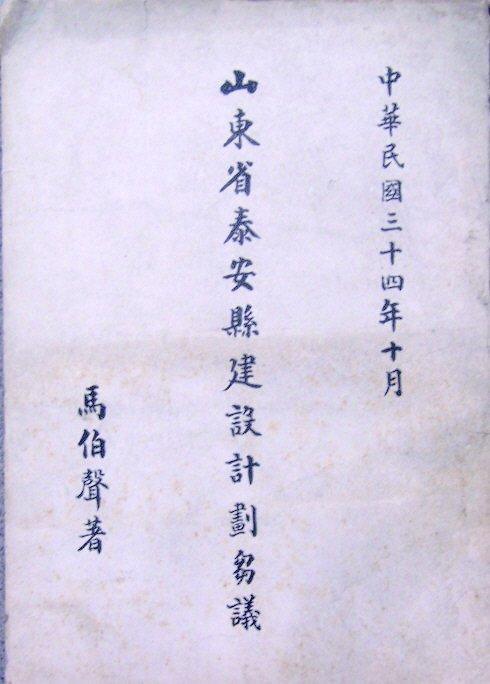 中華民國三十四年十月
山東省泰安縣建設計劃芻議
馬伯聲著